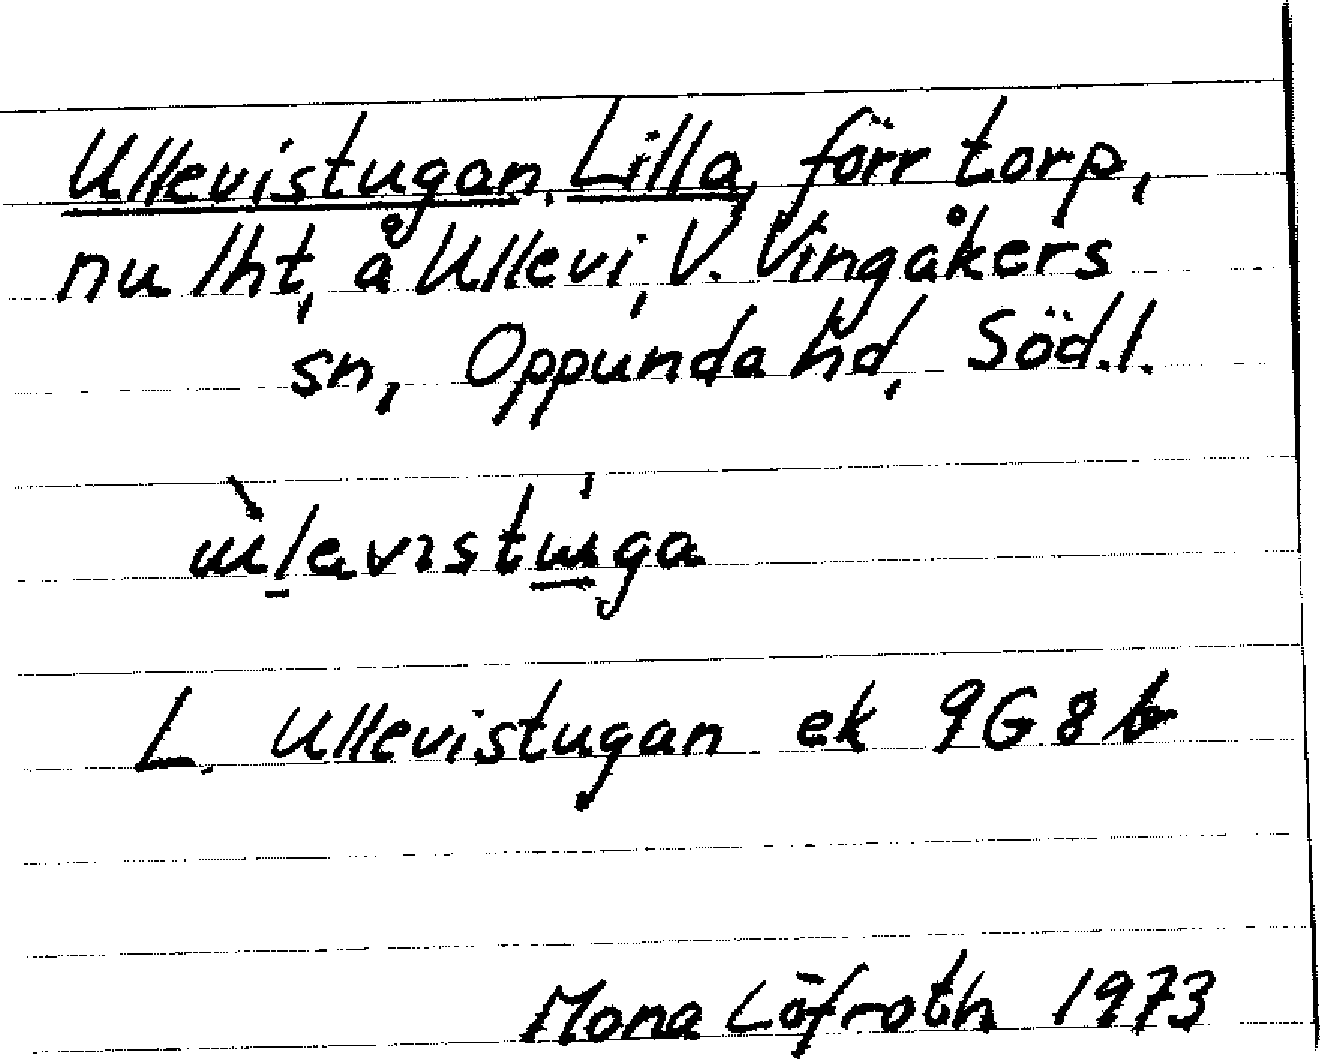 Ullevistugan, Lilla, förr torp,
nu lht, å Ullevi, V. Vingåkers
sn, Oppunda hd, Söd.l.
L. Ullevistugan ek 9G8b
Mona Löfroth 1973